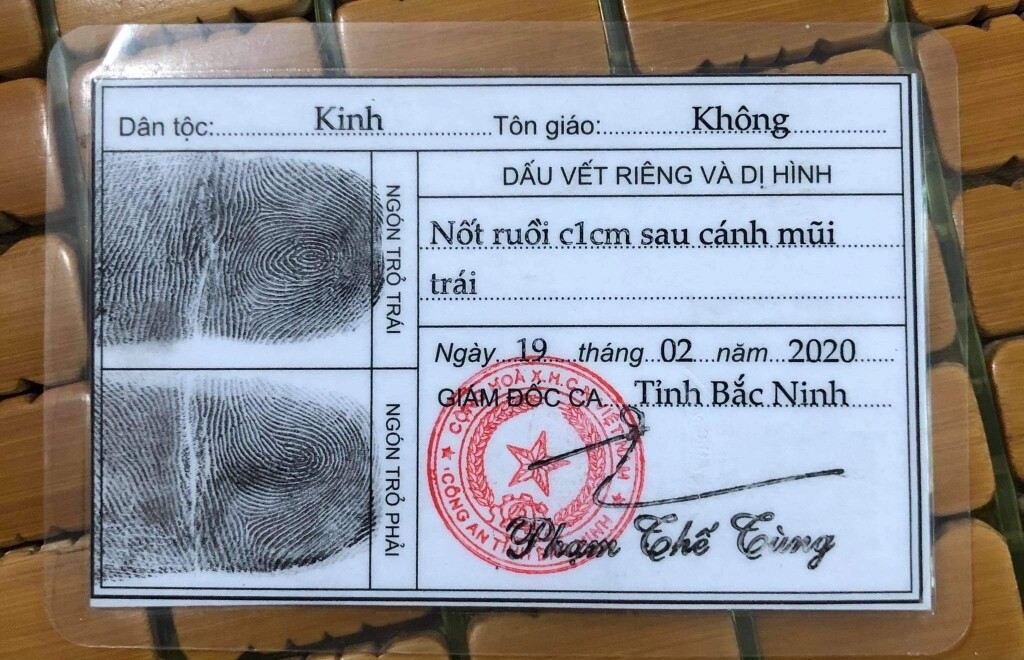 Dân tộc: Kinh Tôn giáo: Không
NGÓN TRỎ TRÁI
NGÓN TRỎ PHẢI
DẤU VẾT RIÊNG VÀ DỊ HÌNH
Nốt ruồi c1cm sau cánh mũi
trái
Ngày 19 tháng 02 năm 2020
GIÁM ĐỐC CA Tỉnh Bắc Ninh
CÔNG AN
Phạm Thế Tùng